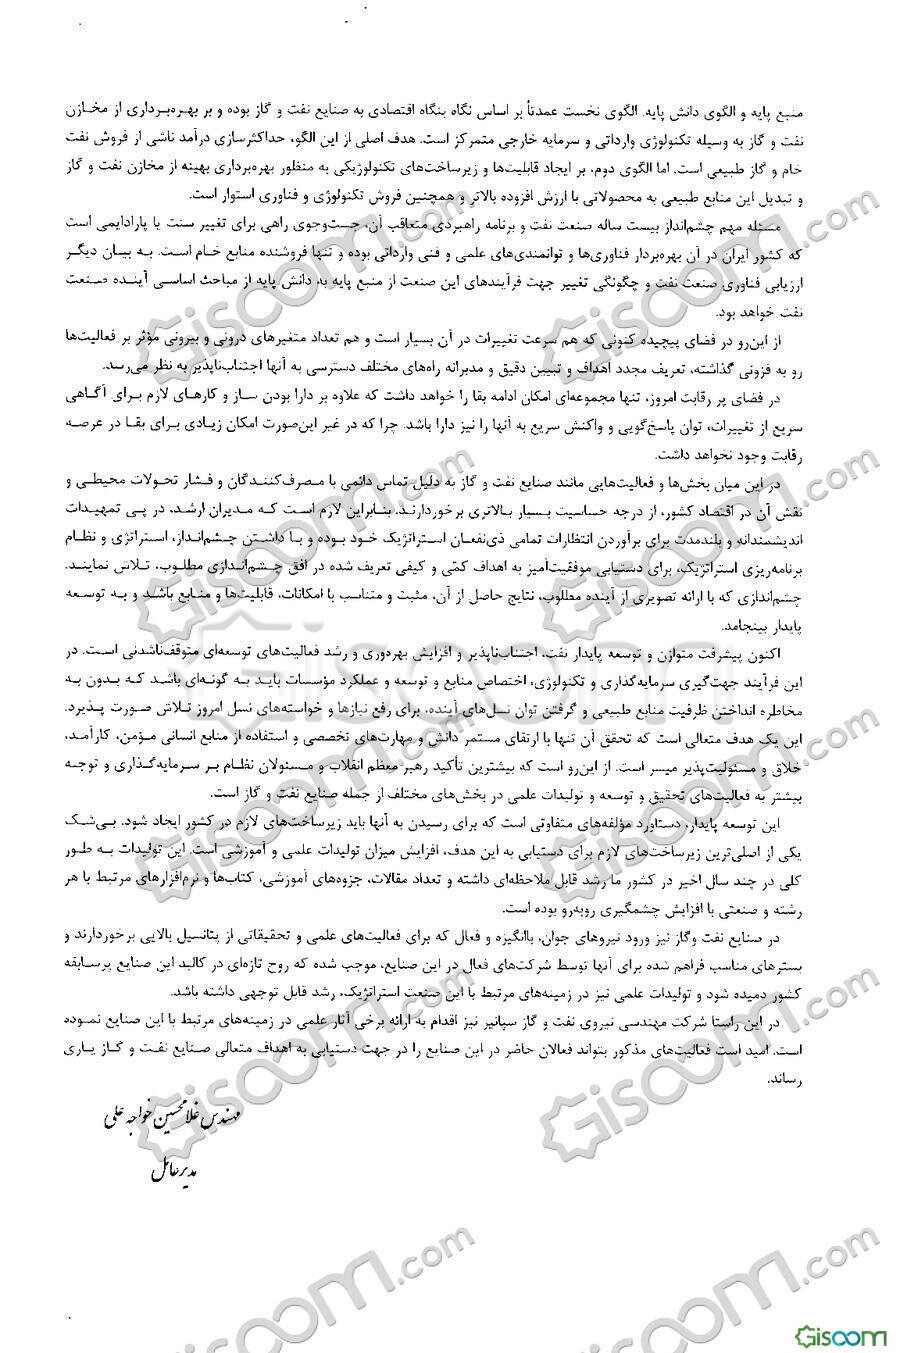 منبع پایه و الگوی دانش پایه. الگوی نخست عمدتاً بر اساس نگاه بنگاه اقتصادی به صنایع نفت و گاز بوده و بر بهره‌برداری از مخازن
نفت و گاز به وسیله تکنولوژی وارداتی و سرمایه خارجی متمرکز است. هدف اصلی از این الگو، حداکثرسازی درآمد ناشی از فروش نفت
خام و گاز طبیعی است. اما الگوی دوم، بر ایجاد قابلیت‌ها و زیرساخت‌های تکنولوژیکی به منظور بهره‌برداری بهینه از مخازن نفت و گاز
و تبدیل این منابع طبیعی به محصولاتی با ارزش افزوده بالاتر و همچنین فروش تکنولوژی و فناوری استوار است.
مسئله مهم چشم‌انداز بیست ساله صنعت نفت و برنامه راهبردی متعاقب آن، جست‌وجوی راهی برای تغییر سنت یا پارادایمی است
که کشور ایران در آن بهره‌بردار فناوری‌ها و توانمندی‌های علمی و فنی وارداتی بوده و تنها فروشنده منابع خام است. به بیان دیگر
ارزیابی فناوری صنعت نفت و چگونگی تغییر جهت فرآیندهای این صنعت از منبع پایه به دانش پایه از مباحث اساسی آینده صنعت
نفت خواهد بود.
از این‌رو در فضای پیچیده کنونی که هم سرعت تغییرات در آن بسیار است و هم تعداد متغیرهای درونی و بیرونی مؤثر بر فعالیت‌ها
رو به فزونی گذاشته، تعریف مجدد اهداف و تبیین دقیق و مدبرانه راه‌های مختلف دسترسی به آنها اجتناب‌ناپذیر به نظر می‌رسد.
در فضای پر رقابت امروز، تنها مجموعه‌ای امکان ادامه بقا را خواهد داشت که علاوه بر دارا بودن ساز و کارهای لازم برای آگاهی
سریع از تغییرات، توان پاسخ‌گویی و واکنش سریع به آنها را نیز دارا باشد. چرا که در غیر این‌صورت امکان زیادی برای بقا در عرصه
رقابت وجود نخواهد داشت.
در این میان بخش‌ها و فعالیت‌هایی مانند صنایع نفت و گاز به دلیل تماس دائمی با مصرف‌کنندگان و فشار تحولات محیطی و
نقش آن در اقتصاد کشور، از درجه حساسیت بسیار بالاتری برخوردارند. بنابراین لازم است که مدیران ارشد، در پی تمهیدات
اندیشمندانه و بلندمدت برای برآوردن انتظارات تمامی ذی‌نفعان استراتژیک خود بوده و با داشتن چشم‌انداز، استراتژی و نظام
برنامه‌ریزی استراتژیک، برای دستیابی موفقیت‌آمیز به اهداف کمّی و کیفی تعریف شده در افق چشم‌اندازی مطلوب، تلاش نمایند.
چشم‌اندازی که با ارائه تصویری از آینده مطلوب، نتایج حاصل از آن، مثبت و متناسب با امکانات، قابلیت‌ها و منابع باشد و به توسعه
پایدار بینجامد.
اکنون پیشرفت متوازن و توسعه پایدار نفت، اجتناب‌ناپذیر و افزایش بهره‌وری و رشد فعالیت‌های توسعه‌ای متوقف‌ناشدنی است. در
این فرآیند جهت‌گیری سرمایه‌گذاری و تکنولوژی، اختصاص منابع و توسعه و عملکرد مؤسسات باید به گونه‌ای باشد که بدون به
مخاطره انداختن ظرفیت منابع طبیعی و گرفتن توان نسل‌های آینده، برای رفع نیازها و خواسته‌های نسل امروز تلاش صورت پذیرد.
این یک هدف متعالی است که تحقق آن تنها با ارتقای مستمر دانش و مهارت‌های تخصصی و استفاده از منابع انسانی مؤمن، کارآمد،
خلاق و مسئولیت‌پذیر میسر است. از این‌رو است که بیشترین تأکید رهبر معظم انقلاب و مسئولان نظام بر سرمایه‌گذاری و توجه
بیشتر به فعالیت‌های تحقیق و توسعه و تولیدات علمی در بخش‌های مختلف از جمله صنایع نفت و گاز است.
این توسعه پایدار، دستاورد مؤلفه‌های متفاوتی است که برای رسیدن به آنها باید زیرساخت‌های لازم در کشور ایجاد شود. بی‌شک
یکی از اصلی‌ترین زیرساخت‌های لازم برای دستیابی به این هدف، افزایش میزان تولیدات علمی و آموزشی است. این تولیدات به طور
کلی در چند سال اخیر در کشور ما رشد قابل ملاحظه‌ای داشته و تعداد مقالات، جزوه‌های آموزشی، کتاب‌ها و نرم‌افزارهای مرتبط با هر
رشته و صنعتی با افزایش چشمگیری روبه‌رو بوده است.
در صنایع نفت وگاز نیز ورود نیروهای جوان، باانگیزه و فعال که برای فعالیت‌های علمی و تحقیقاتی از پتانسیل بالایی برخوردارند و
بسترهای مناسب فراهم شده برای آنها توسط شرکت‌های فعال در این صنایع، موجب شده که روح تازه‌ای در کالبد این صنایع پرسابقه
کشور دمیده شود و تولیدات علمی نیز در زمینه‌های مرتبط با این صنعت استراتژیک، رشد قابل توجهی داشته باشد.
در این راستا شرکت مهندسی نیروی نفت و گاز سپانیر نیز اقدام به ارائه برخی آثار علمی در زمینه‌های مرتبط با این صنایع نموده
است. امید است فعالیت‌های مذکور بتواند فعالان حاضر در این صنایع را در جهت دستیابی به اهداف متعالی صنایع نفت و گاز یاری
رساند.
مهندس غلامحسین خواجه علی
مدیرعامل
Gisoom.com
Gisoom